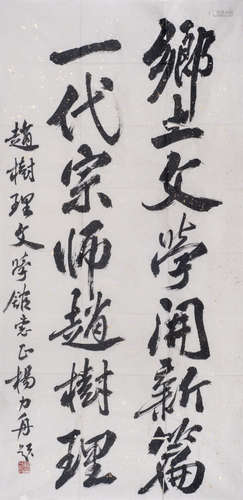 鄉土文學開新篇
一代宗师趙樹理
趙樹理文學館惠正楊力舟題